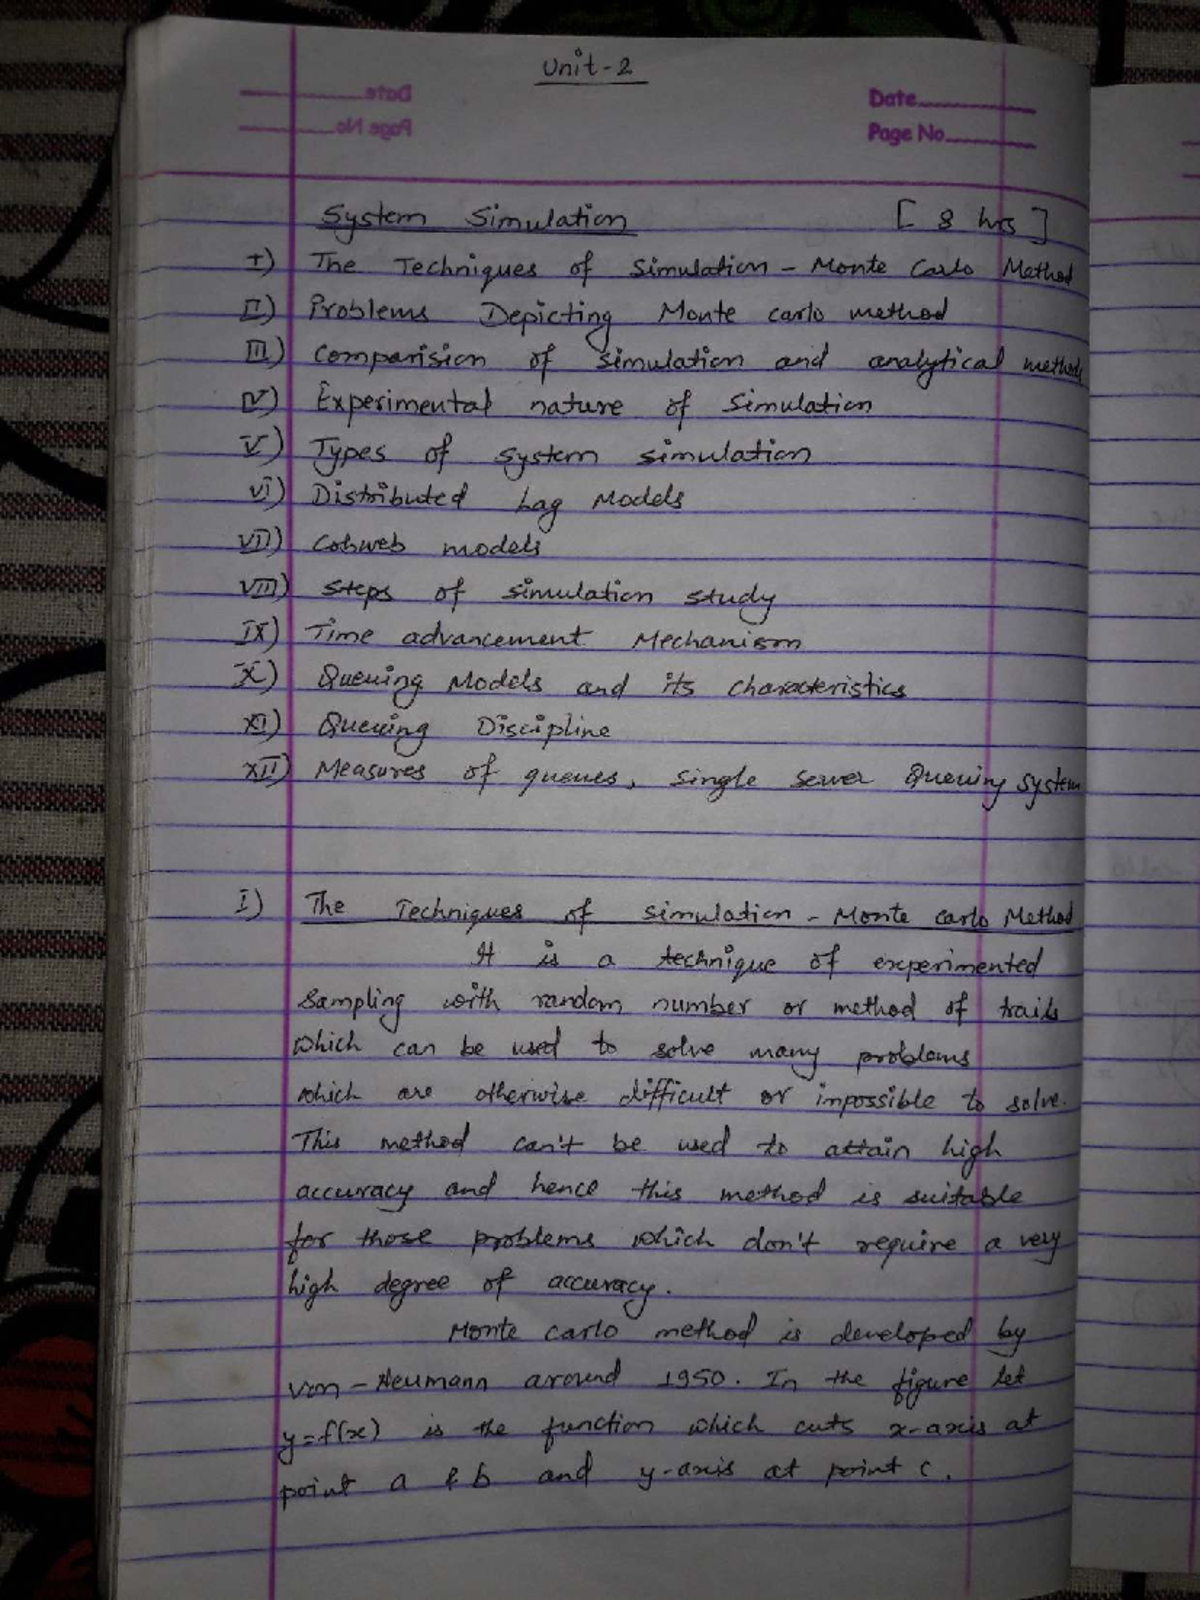 Unit-2
Date
Page No.
Date
Page No.
System Simulation [ 8 hrs ]
I) The Techniques of Simulation - Monte Carlo Method
II) Problems Depicting Monte carlo method
III) Comparision of simulation and analytical methods
IV) Experimental nature of Simulation
V) Types of system simulation
VI) Distributed Lag Models
VII) Cobweb models
VIII) Steps of simulation study
IX) Time advancement Mechanism
X) Queuing Models and its characteristics
XI) Queuing Discipline
XII) Measures of queues, Single server Queuing System
I) The Techniques of simulation - Monte Carlo Method
It is a technique of experimented
Sampling with random number or method of trails
which can be used to solve many problems
which are otherwise difficult or impossible to solve.
This method can't be used to attain high
accuracy and hence this method is suitable
for those problems which don't require a very
high degree of accuracy.
Monte carlo method is developed by
von-Neumann around 1950. In the figure let
y=f(x) is the function which cuts x-axis at
point a & b and y-axis at point c.